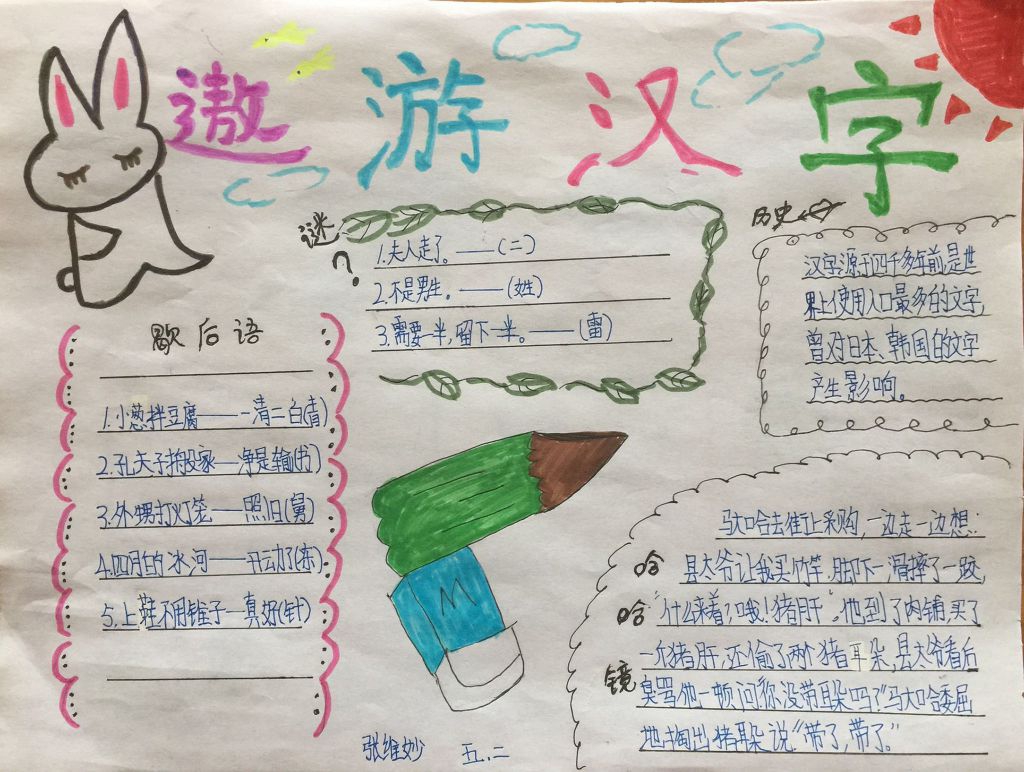 遨游汉字
谜?
1.夫人走了。——(二)
2.不是男生。——(姓)
3.需要一半,留下一半。——(雷)
历史
汉字源于四千多年前,是世
界上使用人口最多的文字,
曾对日本、韩国的文字
产生影响。
歇后语
1.小葱拌豆腐——一清二白(青)
2.孔夫子搬家—净是输(书)
3.外甥打灯笼——照旧(舅)
4.四月的冰河——开动了(冻)
5.上鞋不用锥子—真好(针)
哈哈镜
马大哈去街上采购,一边走一边想:
县太爷让我买竹竿,脚下一滑摔了一跤,
"什么来着?哦!猪肝"。他到了肉铺,买了
一个猪肝,还偷了两个猪耳朵,县太爷看后
臭骂他一顿问:"你没带耳朵吗?"马大哈委屈
地掏出猪耳朵说"带了,带了。"
M
张维妙 五.二